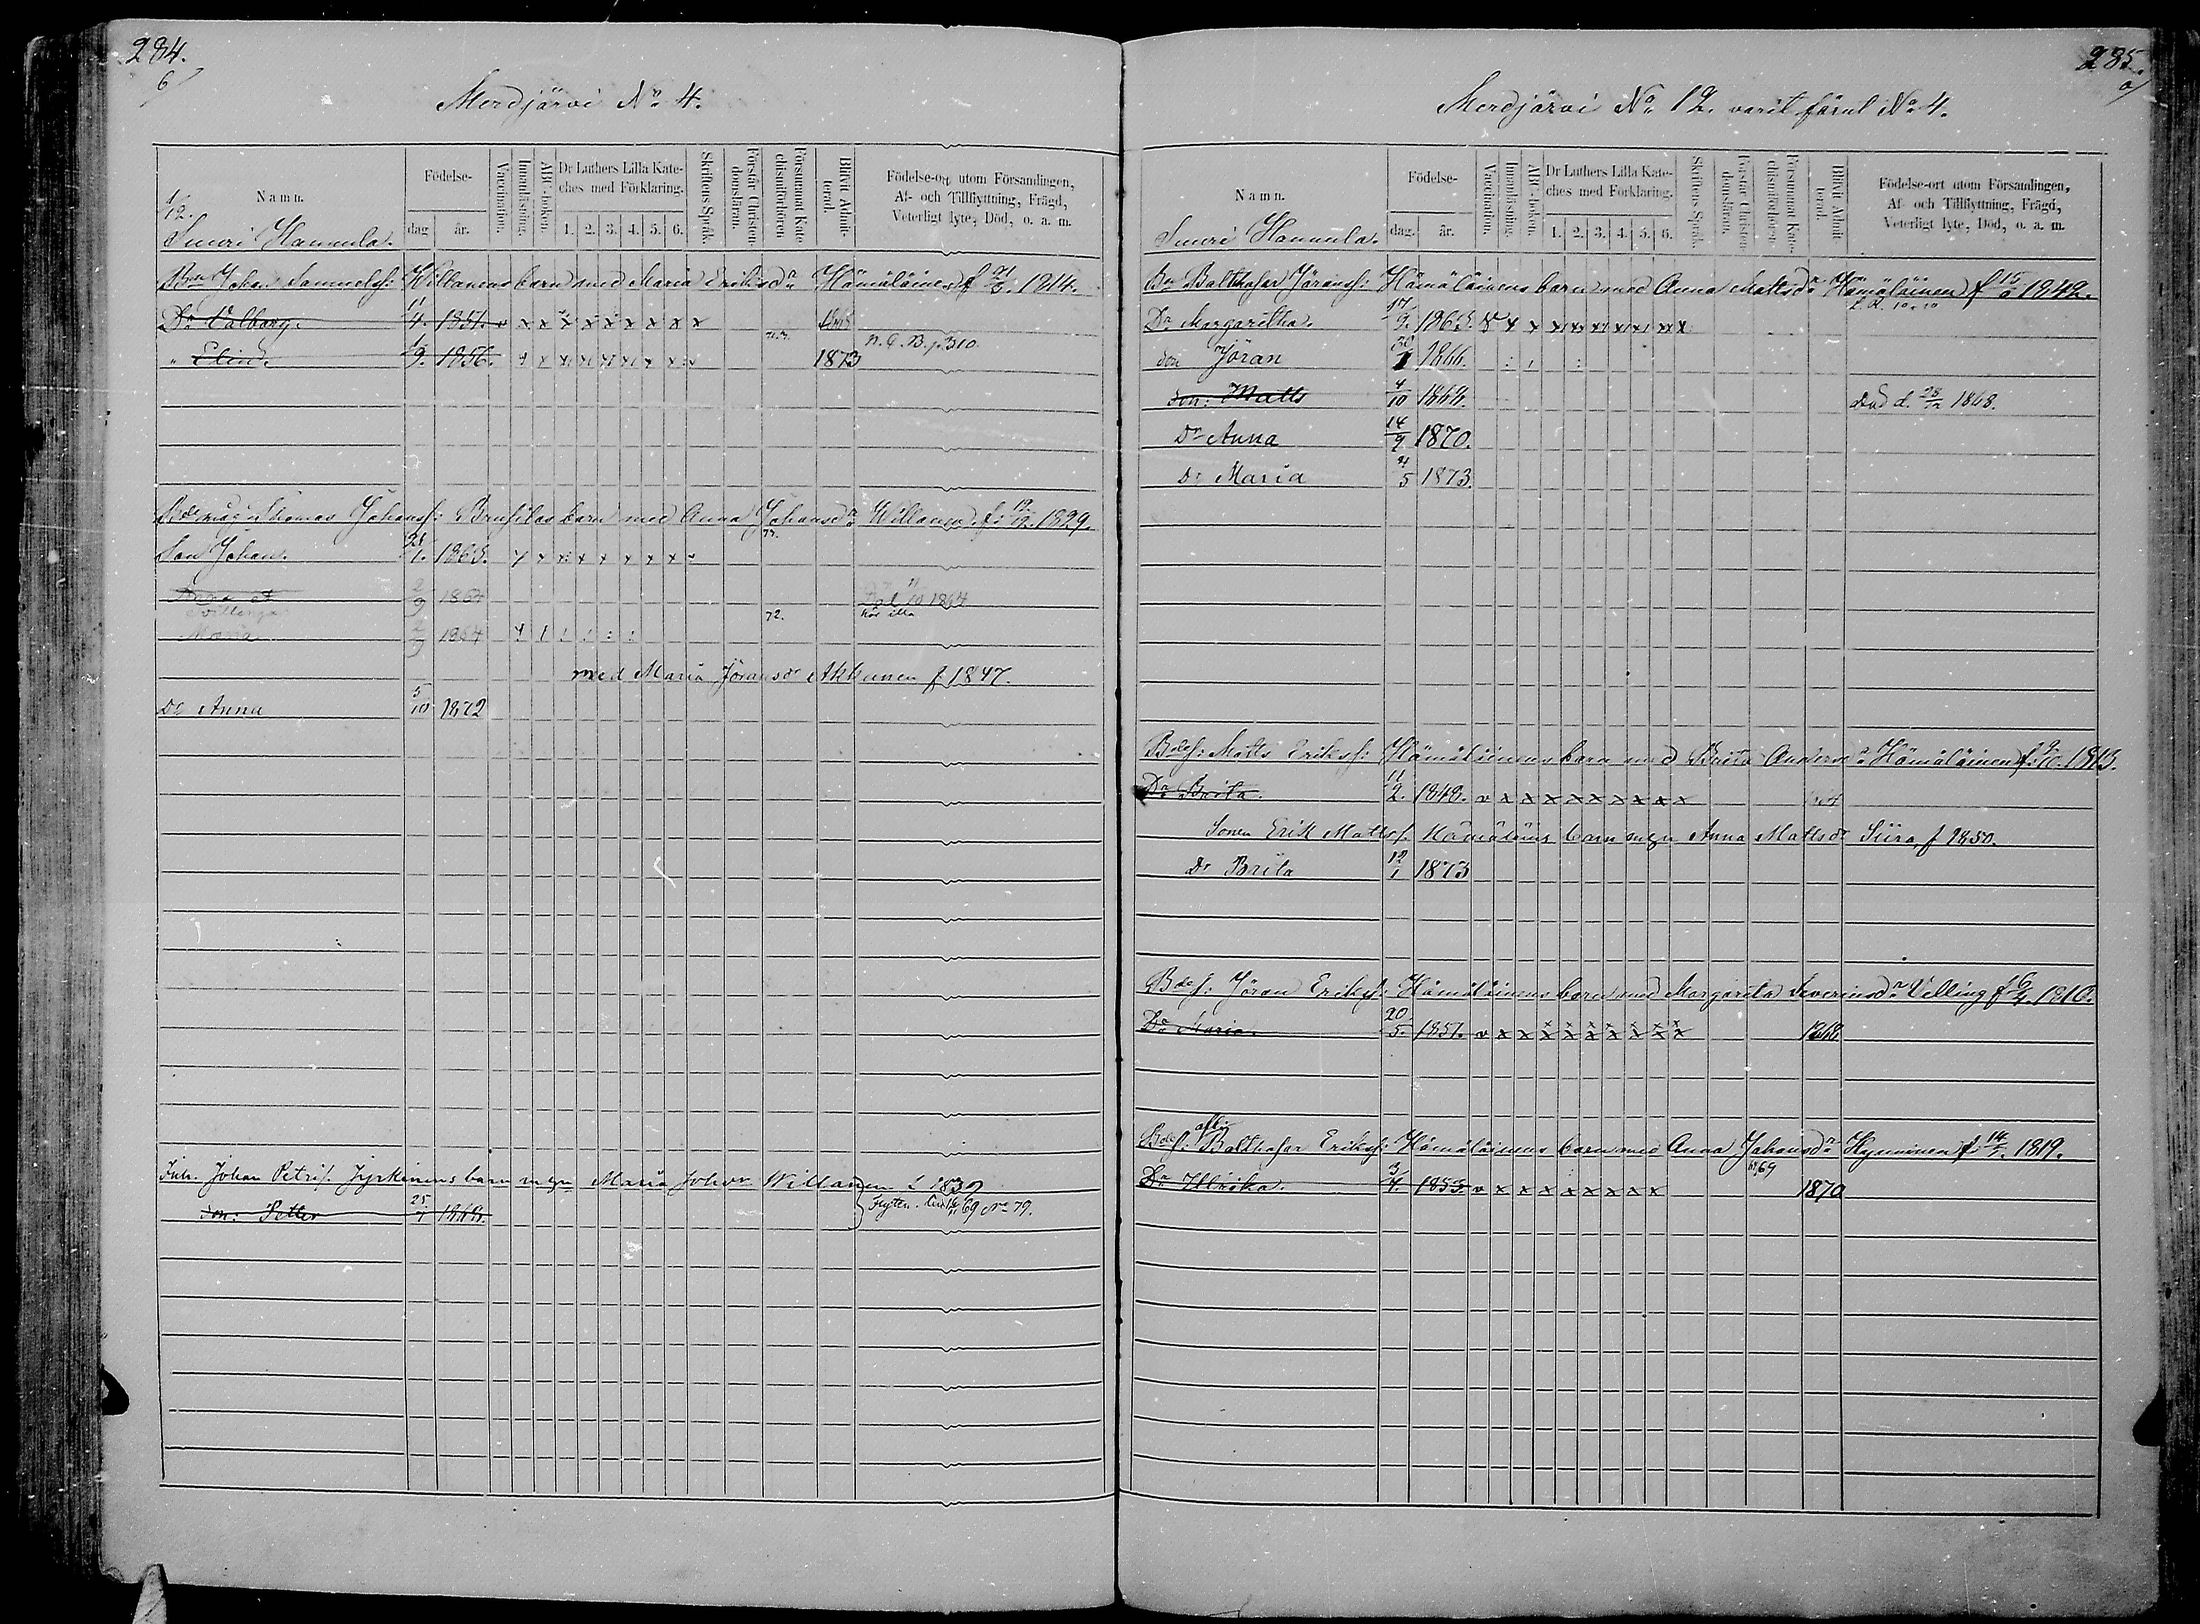 284.
6/
Merdjärvi No 4.
1/12.
Namn.
Födelse-
dag
år.
Vaccination.
Innanläsning.
ABC-boken.
Dr Luthers Lilla Kate-
ches med Förklaring.
1. 2. 3. 4. 5. 6.
Skriftens Språk.
Förstår Christen-
domsläran.
Försummat Kate-
chismiförhören
Blifvit Admit-
terad.
Födelse-ort utom Församlingen,
Af- och Tillflyttning, Frägd,
Veterligt lyte, Död, o. a. m.
Suuri Hannula.
Johan Samuelsf: Willanens barn med Maria Eriksdr Hämäläinen f 1814.
Dr Valborg. 11/4. 1851. v x x x x x x x x x
" Elin. 9. 1856. x x x x x x x x x 1873 n. C. B. p. 310.
Thomas Johansf: Brusilas barn med Anna Johansdr Willanen f: 1829.
73.
Son Johan. 1. 1863. x x x x x x x x
1864 1864
Tvillingar
72. hör illa
Maria 1864
med Maria Jöransdr Akkanen f 1847.
Dr Anna 5/10 1872
Inh. Johan Petrif. Jyrkinens barn m. Maria Johdr Willanen f. 1832
Son: Petter 25/7 1868. 69 No 79.
285.
a/
Merdjärvi No 12. varit förut No 4.
Namn.
Födelse-
dag.
år.
Vaccination.
Innanläsning.
ABC-boken.
Dr Luthers Lilla Kate-
ches med Förklaring.
1. 2. 3. 4. 5. 6.
Skriftens Språk.
Förstår Christen-
domsläran.
Försummat Kate-
chismiförhören.
Blifvit Admit-
terad.
Födelse-ort utom Församlingen,
Af- och Tillflyttning, Frägd,
Veterligt lyte, Död, o. a. m.
Suuri Hannula.
Bn Balthasar Jöransf: Hämäläinens barn med Anna Mattsdr Hämäläinen f 1842.
Dr Margaritha. 17/9. 1863. v x x x x x x x x x
Son Jöran 1866.
Son: Matts 4/10 1868. Död d. 28/12 1868.
Dr Anna 14/9 1870.
Dr Maria 5 1873.
Bdes: Matts Eriksf: Hämäläinens barn med Brita Andersdr Hämäläinen f: 1813.
Dr Brita. 11/2. 1848. v x x x x x x x x x
Sonen Erik Mattsf. Hämäläins barn m. Anna Mattsdr Siira f 1850.
Dr Brita 12/1 1873
Bdef: Jöran Eriksf: Hämäläinens barn med Margareta Severinsdr Välling f 6/4. 1810.
Dr Maria. 20/5. 1851. v x x x x x x x x x 1868.
Bdef: Balthasar Eriksf: Hämäläinens barn med Anna Johansdr Hyyninen f: 1819.
69
Dr Ulrika. 3/4. 1855. v x x x x x x x x 1870